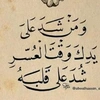 ومن شد على
يدك وقت العسر
شد على قلبه